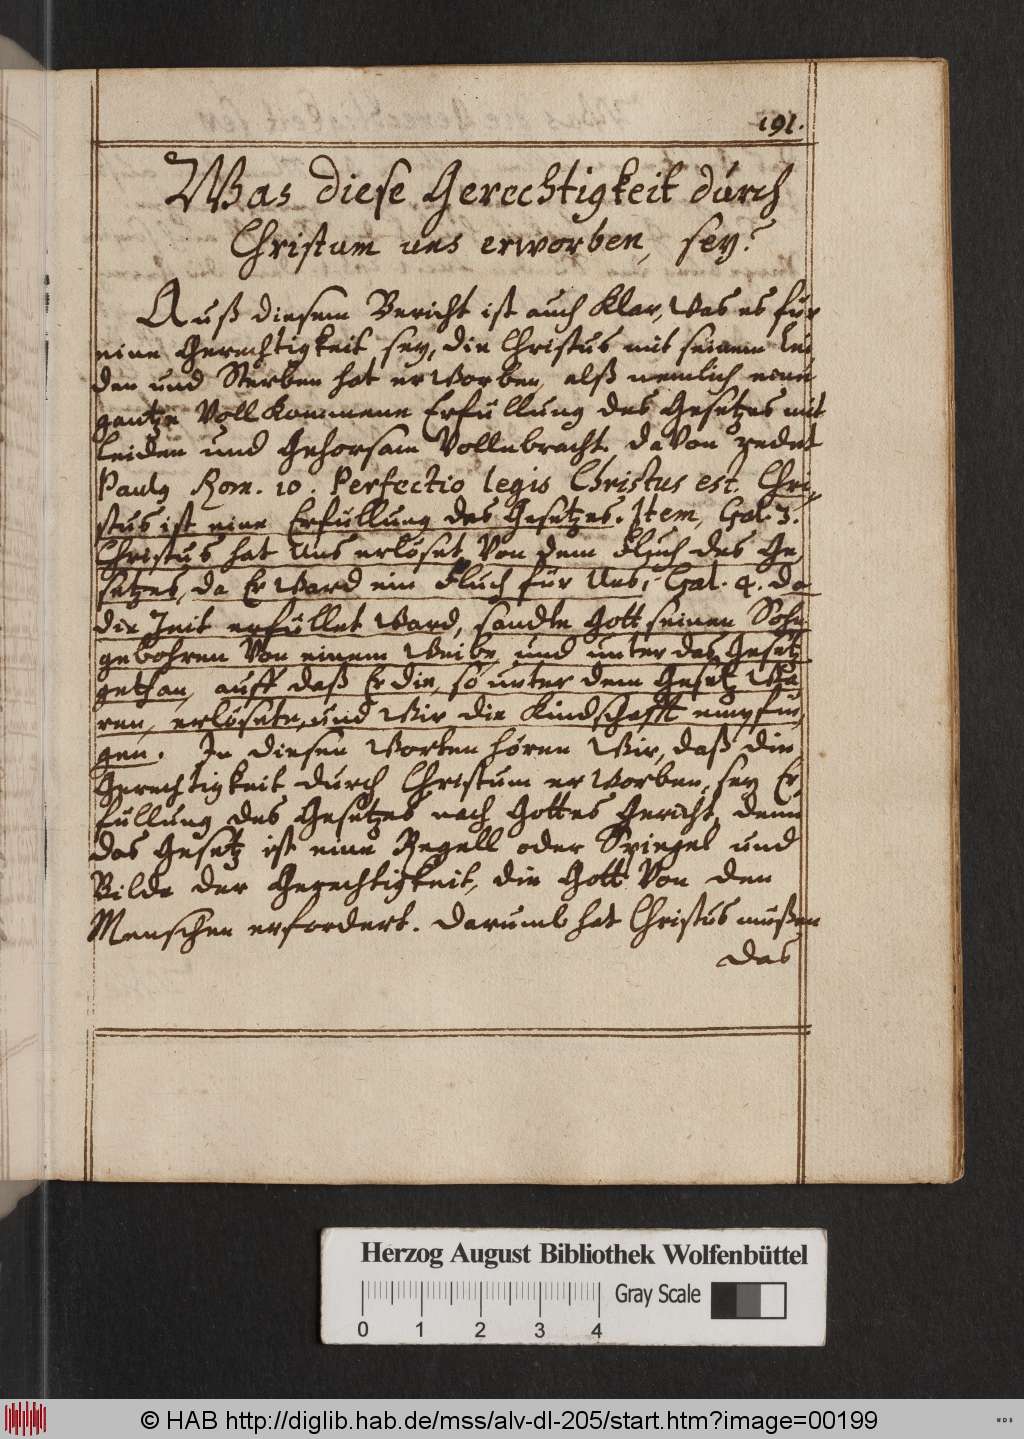 191.
Was diese Gerechtigkeit durch
Christum uns erworben, sey?
Auß diesem Bericht ist auch Klar, Was es für
eine Gerechtigkeit sey, die Christus mit seinem lei
den und Sterben hat erWorben, alß nemlich eine
gantze VollKommene Erfüllung des Gesetzes mit
leiden und Gehorsam Vollnbracht. daVon redet
Paulus Rom. 10. Perfectio legis Christus est. Chri,
stus ist eine Erfüllung des Gesetzes. Item, Gal. 3.
Christus hat Uns erlöset Von dem Fluch des Ge,
setzes, da Er Ward ein Fluch für Uns, Gal. 4. da
die Zeit erfüllet Ward, sandte Gott seinen Sohn
gebohren Von einem Weibe, und unter das Gesetz
gethan, auff daß Er die, so unter dem Gesetz Wa
ren, erlösete, und Wir die Kindschafft empfin,
gen. In diesen Worten hören Wir, daß die
Gerechtigkeit durch Christum erWorben, sey Er,
füllung des Gesetzes nach Gottes Gericht, denn
das Gesetz ist eine Regell oder Spiegel und
Bilde der Gerechtigkeit, die Gott Von den
Menschen erfordert. darumb hat Christus müßen
das
Herzog August Bibliothek Wolfenbüttel
Gray Scale
0 1 2 3 4
© HAB http://diglib.hab.de/mss/alv-dl-205/start.htm?image=00199
WDB